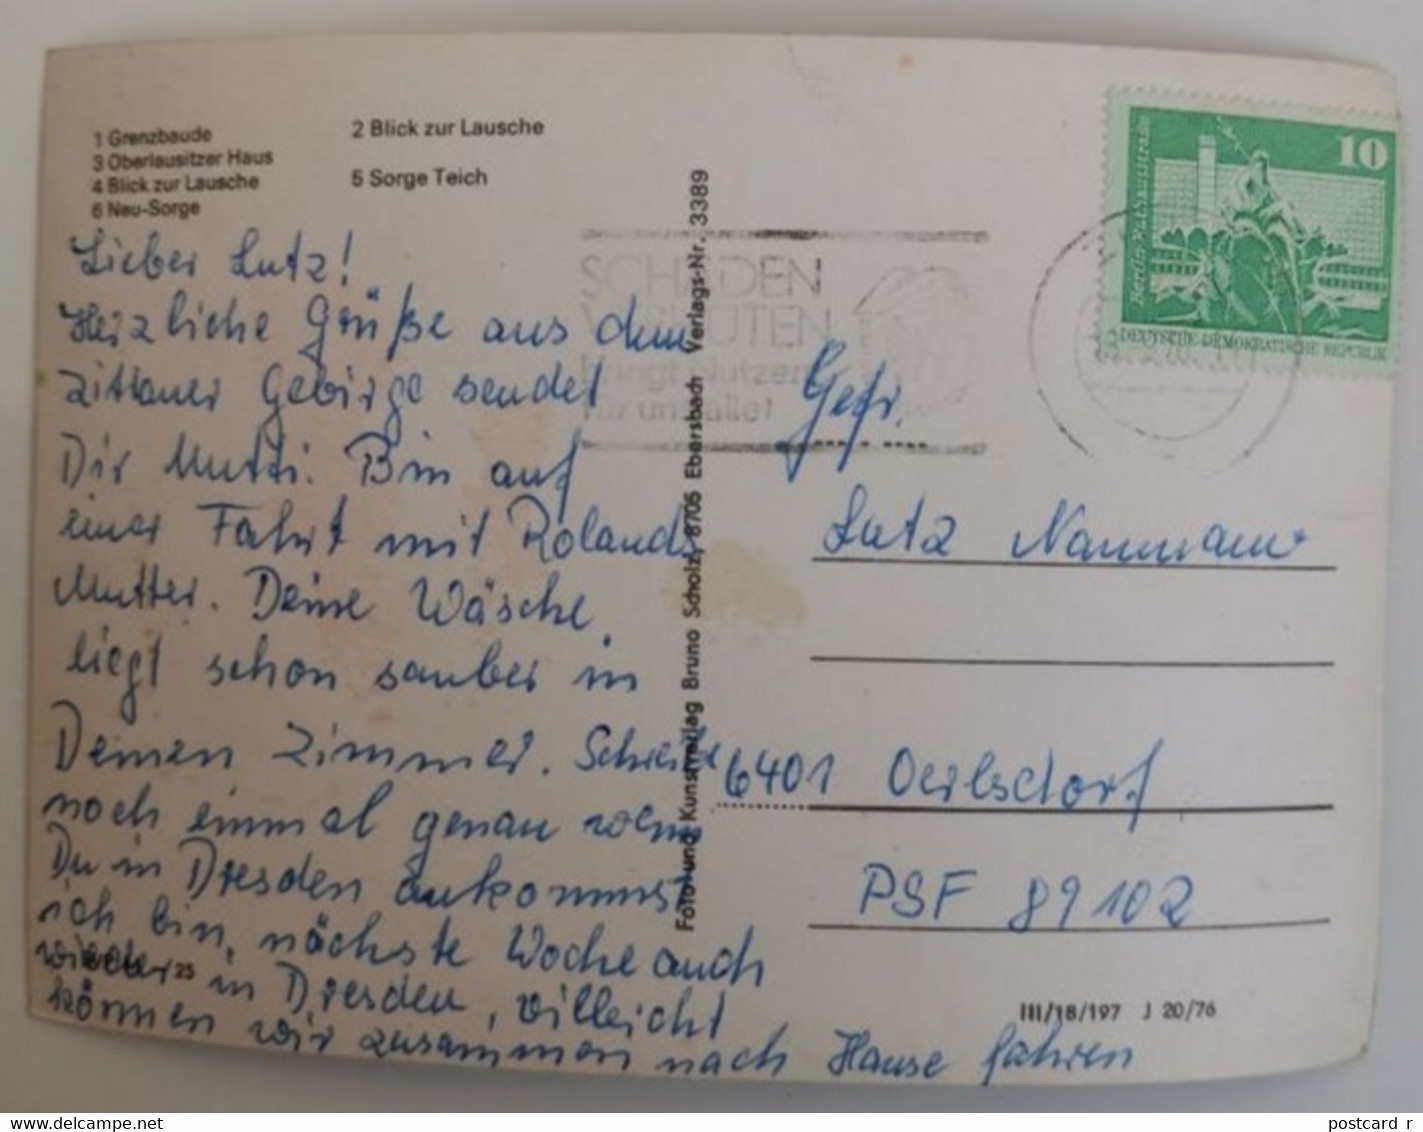 1 Grenzbaude
2 Blick zur Lausche
3 Oberlausitzer Haus
4 Blick zur Lausche
5 Sorge Teich
6 Neu-Sorge
Lieber Lutz!
Herzliche Grüße aus dem
Zittauer Gebirge sendet
Dir Mutti. Bin auf
einer Fahrt mit Rolands
Mutter. Deine Wäsche
liegt schon sauber in
Deinem Zimmer. Schreibe
noch einmal genau wenn
Du in Dresden ankommst
ich bin nächste Woche auch
wieder in Dresden, villeicht
können wir zusammen nach Hause fahren
25
Foto und Kunstverlag Bruno Scholz, 8705 Ebersbach Verlags-Nr. 3389
SCHÄDEN
VERHÜTEN
bringt Nutzen
für uns alle!
10
Berlin-Rathausstraße
DEUTSCHE DEMOKRATISCHE REPUBLIK
Gefr.
Lutz Naumann
6401 Oerlsdorf
PSF 89102
III/18/197 J 20/76
www.delcampe.net
postcard_r